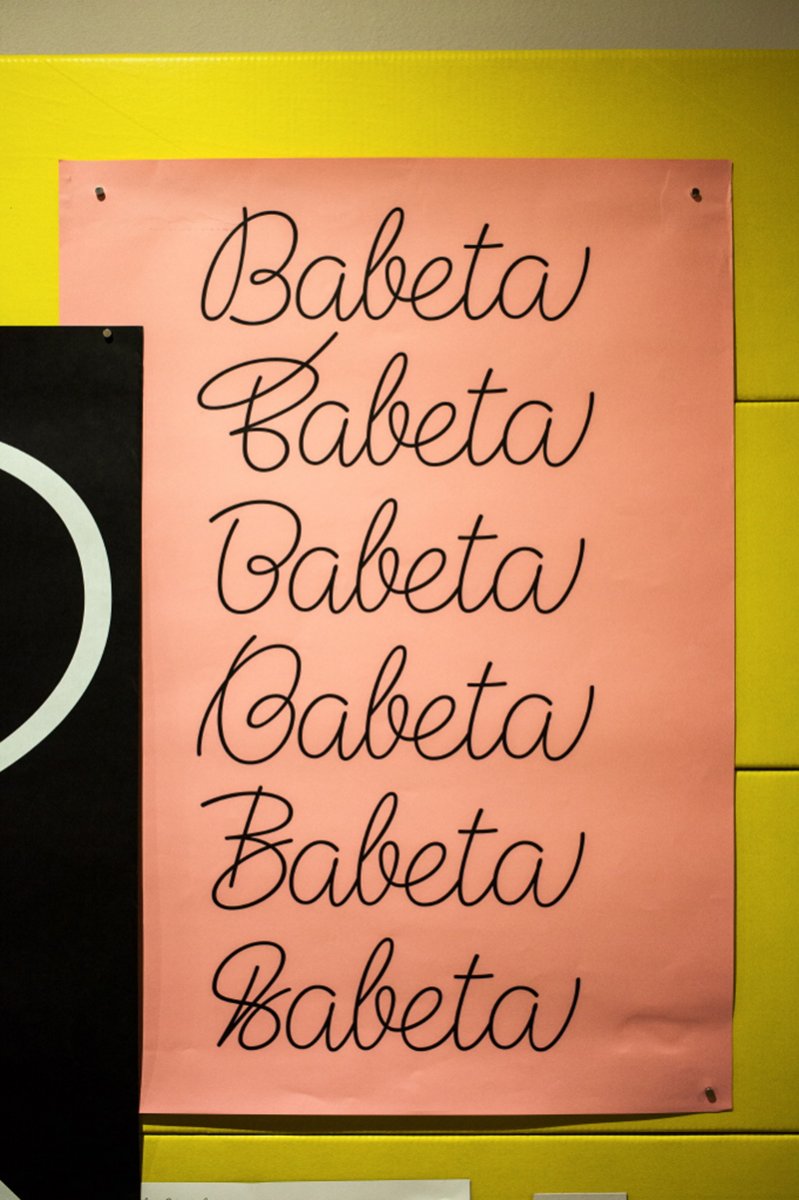 Babeta
Babeta
Babeta
Babeta
Babeta
Babeta